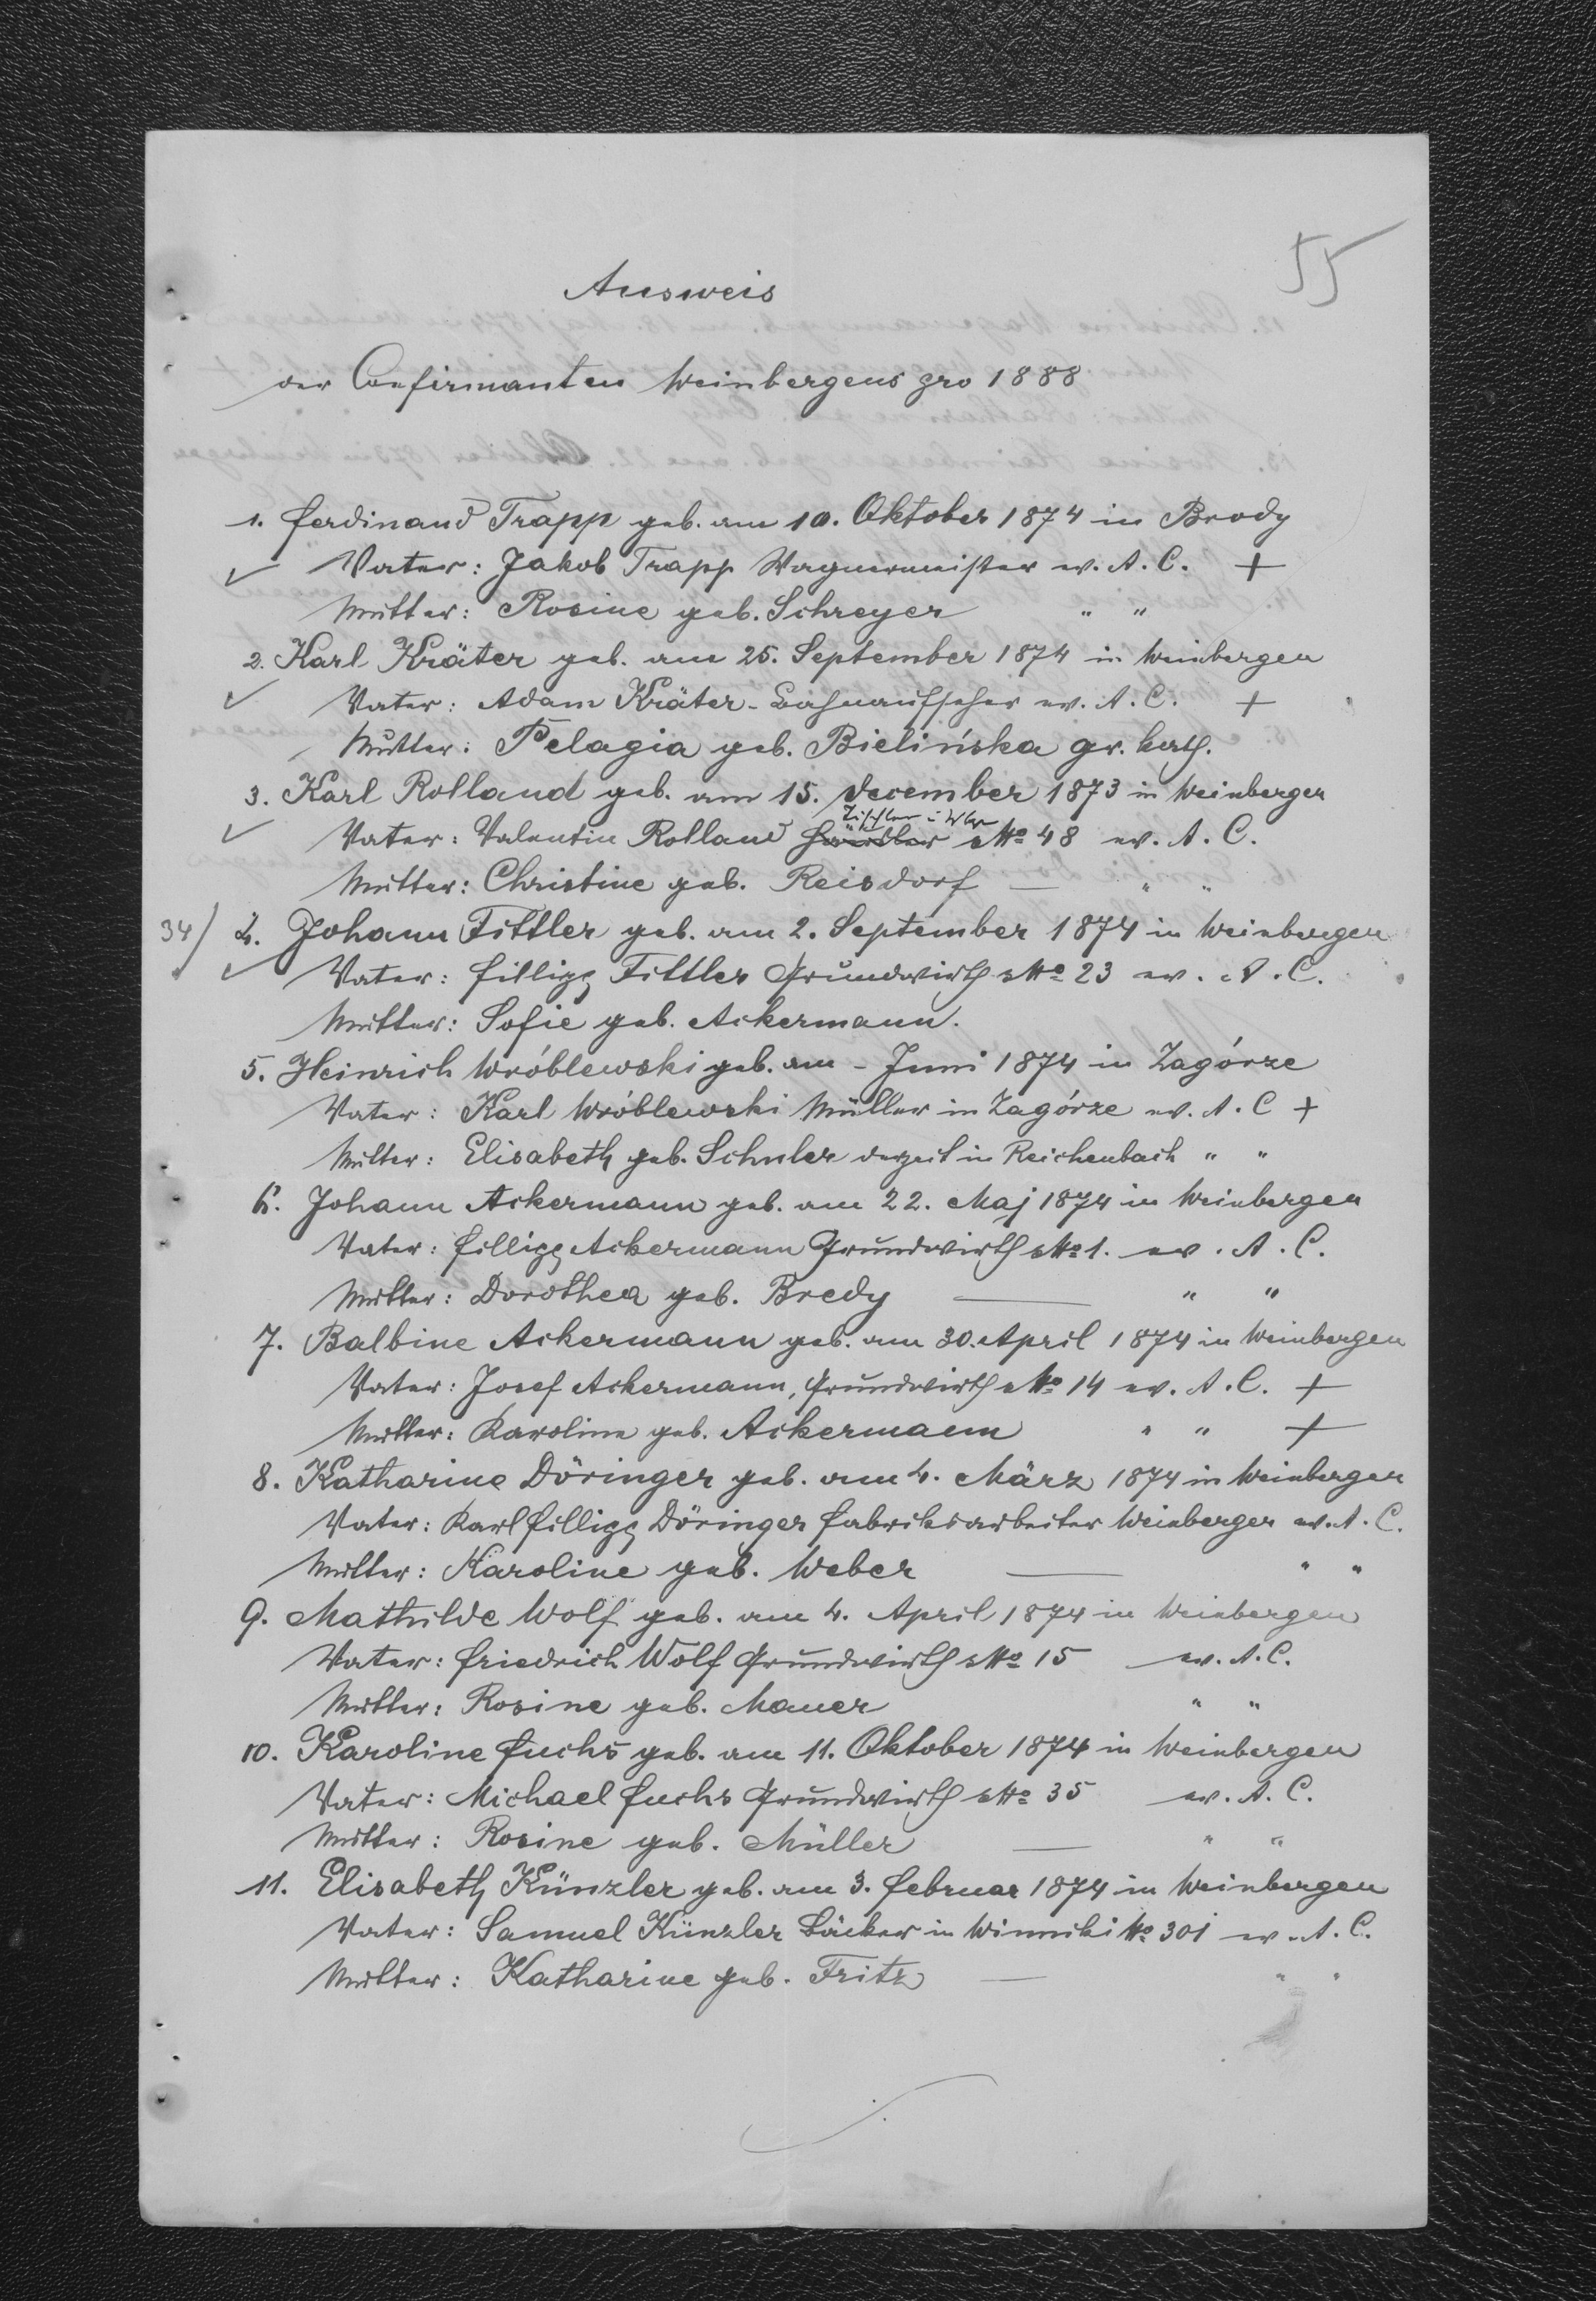 55
Ausweis
der Confirmanten Weinbergens pro 1888
1. Ferdinand Trapp geb. am 10. Oktober 1874 in Brody
Vater: Jakob Trapp Wagnermeister ev. A. C. +
Mutter: Rosine geb. Schreyer " "
2. Karl Kräter geb. am 25. September 1874 in Weinbergen
Vater: Adam Kräter - Bahnaufseher ev. A. C. +
Mutter: Pelagia geb. Bielińska gr. kath.
3. Karl Rolland geb. am 15. December 1873 in Weinbergen
Tischler in
Vater: Valentin Rolland No 48 ev. A. C.
Mutter: Christine geb. Reisdorf — " "
34/ 4. Johann Fittler geb. am 2. September 1874 in Weinbergen
Vater: Fillipp Fittler Grundwirth No 23 ev. A. C.
Mutter: Sofie geb. Ackermann.
5. Heinrich Wróblewski geb. am - Juni 1874 in Zagórze
Vater: Karl Wróblewski Müller in Zagórze ev. A. C +
Mutter: Elisabeth geb. Schuler derzeit in Reichenbach " "
6. Johann Ackermann geb. am 22. Maj 1874 in Weinbergen
Vater: Fillipp Ackermann Grundwirth No 1. ev. A. C.
Mutter: Dorothea geb. Bredy — " "
7. Balbine Ackermann geb. am 30. April 1874 in Weinbergen
Vater: Josef Ackermann, Grundwirth No 14 ev. A. C. +
Mutter: Karoline geb. Ackermann " " +
8. Katharine Döringer geb. am 4. März 1874 in Weinbergen
Vater: Karl Fillipp Döringer Fabriksarbeiter Weinbergen ev. A. C.
Mutter: Karoline geb. Weber — " "
9. Mathilde Wolf geb. am 4. April 1874 in Weinbergen
Vater: Friedrich Wolf Grundwirth No 15 ev. A. C.
Mutter: Rosine geb. Mauer " "
10. Karoline Fuchs geb. am 11. Oktober 1874 in Weinbergen
Vater: Michael Fuchs Grundwirth No 35 ev. A. C.
Mutter: Rosine geb. Müller — " "
11. Elisabeth Künzler geb. am 3. Februar 1874 in Weinbergen
Vater: Samuel Künzler Bäcker in Winniki No 301 ev. A. C.
Mutter: Katharine geb. Fritz — " "